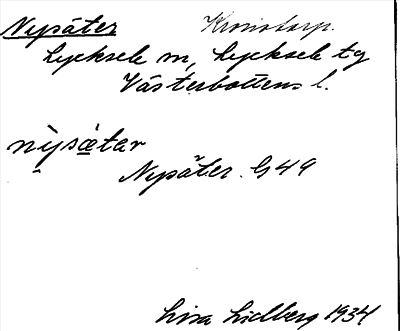 Nysäter Kronotorp.
Lycksele sn, Lycksele tg
Västerbottens l.
nỳsæ̀tar
Nysäter. G49
Lisa Lidberg 1934